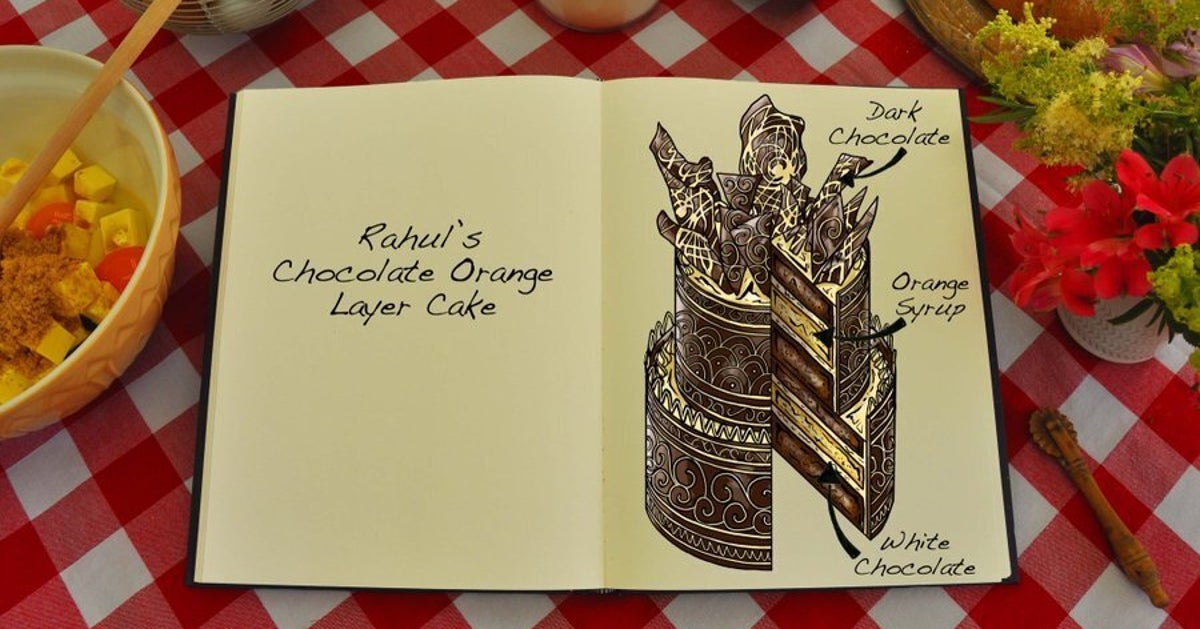 Rahul's
Chocolate Orange
Layer Cake
Dark
Chocolate
Orange
Syrup
White
Chocolate